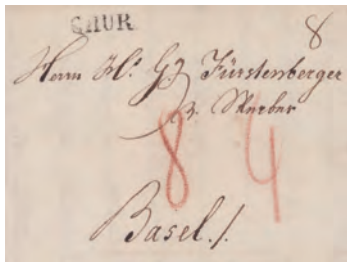 CHUR
8
Herrn
Fürstenberger
z. Merber
8 4
Basel./.